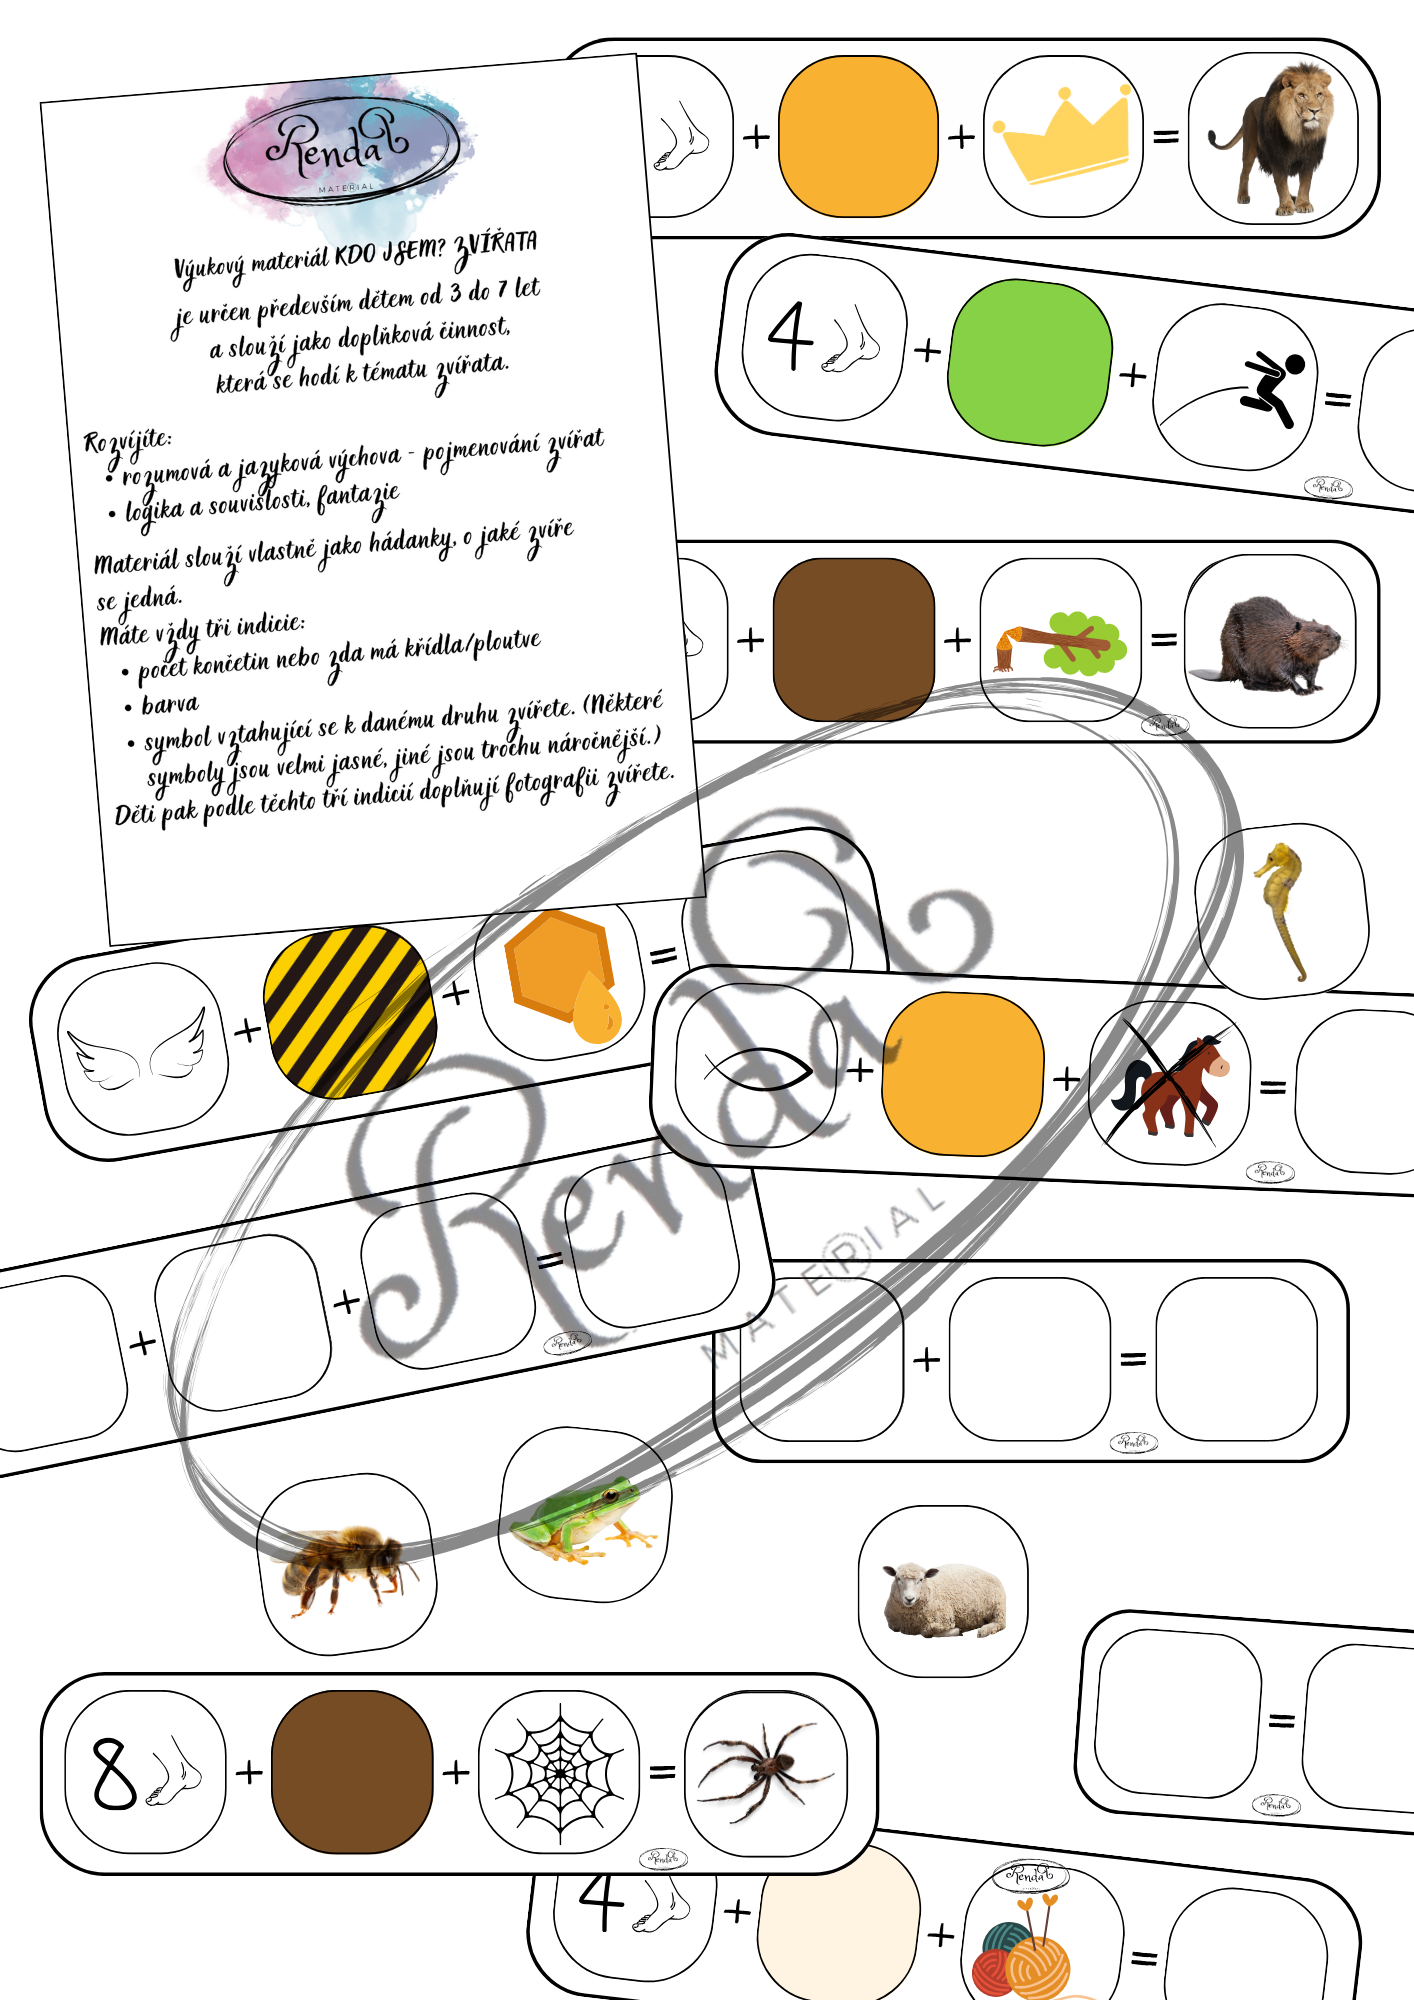 Renda
MATERIAL
Výukový materiál KDO JSEM? ZVÍŘATA
je určen především dětem od 3 do 7 let
a slouží jako doplňková činnost,
která se hodí k tématu zvířata.
Rozvíjíte:
• rozumová a jazyková výchova - pojmenování zvířat
• logika a souvislosti, fantazie
Materiál slouží vlastně jako hádanky, o jaké zvíře
se jedná.
Máte vždy tři indicie:
• počet končetin nebo zda má křídla/ploutve
• barva
• symbol vztahující se k danému druhu zvířete. (Některé
symboly jsou velmi jasné, jiné jsou trochu náročnější.)
Děti pak podle těchto tří indicií doplňují fotografii zvířete.
+ + =
4 + + =
Renda
+ + =
Renda
+ + =
+ + =
Renda
Renda
MATERIAL
+ + =
Renda
+ =
Renda
=
Renda
8 + + =
Renda
4 + + =
Renda